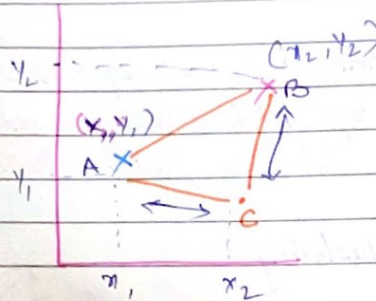 (x₂, y₂)
y₂
B
(x₁, y₁)
A
y₁
C
x₁
x₂